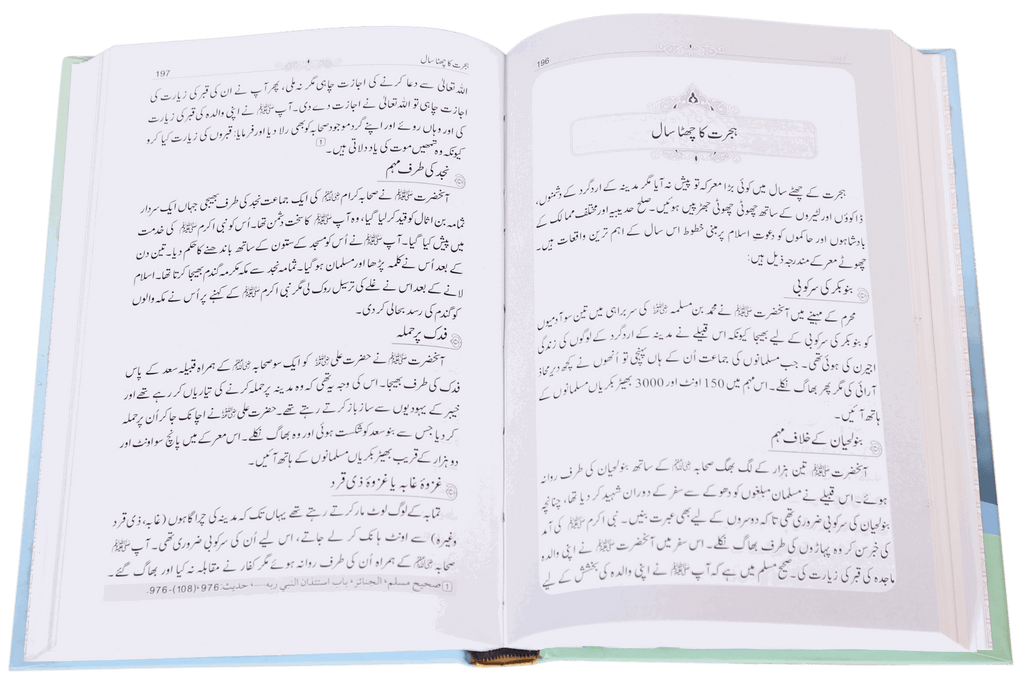 196
ہجرت کا چھٹا سال
ہجرت کے چھٹے سال میں کوئی بڑا معرکہ تو پیش نہ آیا مگر مدینہ کے اردگرد کے دشمنوں،
ڈاکوؤں اور لٹیروں کے ساتھ چھوٹی چھوٹی جھڑپیں ہوئیں۔ صلح حدیبیہ اور مختلف ممالک کے
بادشاہوں اور حاکموں کو دعوتِ اسلام پر مبنی خطوط اس سال کے اہم ترین واقعات ہیں۔
چھوٹے معرکے مندرجہ ذیل ہیں:
بنو بکر کی سرکوبی
محرم کے مہینے میں آنحضرت ﷺ نے محمد بن مسلمہ رضی اللہ عنہ کی سربراہی میں تین سو آدمیوں
کو بنو بکر کی سرکوبی کے لیے بھیجا کیونکہ اس قبیلے نے مدینہ کے اردگرد کے لوگوں کی زندگی
اجیرن کی ہوئی تھی۔ جب مسلمانوں کی جماعت اُن کے ہاں پہنچی تو اُنھوں نے کچھ دیر محاذ
آرائی کی مگر پھر بھاگ نکلے۔ اس مہم میں 150 اونٹ اور 3000 بھیڑ بکریاں مسلمانوں کے
ہاتھ آئیں۔
بنو لحیان کے خلاف مہم
آنحضرت ﷺ تین ہزار کے لگ بھگ صحابہ کے ساتھ بنولحیان کی طرف روانہ
ہوئے۔ اس قبیلے نے مسلمان مبلغوں کو دھوکے سے سفر کے دوران شہید کر دیا تھا، چنانچہ
بنولحیان کی سرکوبی ضروری تھی تاکہ دوسروں کے لیے بھی عبرت بنیں۔ نبی اکرم ﷺ کی آمد
کی خبر سن کر وہ پہاڑوں کی طرف بھاگ نکلے۔ اس سفر میں آنحضرت ﷺ نے اپنی والدہ
ماجدہ کی قبر کی زیارت کی۔ صحیح مسلم میں ہے کہ آپ ﷺ نے اپنی والدہ کی بخشش کے لیے
ہجرت کا چھٹا سال 197
اللہ تعالیٰ سے دعا کرنے کی اجازت چاہی مگر نہ ملی، پھر آپ نے ان کی قبر کی زیارت کی
اجازت چاہی تو اللہ تعالیٰ نے اجازت دے دی۔ آپ ﷺ نے اپنی والدہ کی قبر کی زیارت
کی اور وہاں روئے اور اپنے گرد موجود صحابہ کو بھی رلا دیا اور فرمایا: قبروں کی زیارت کیا کرو
کیونکہ وہ تمھیں موت کی یاد دلاتی ہیں۔ 1
نجد کی طرف مہم
آنحضرت ﷺ نے صحابہ کرام کی ایک جماعت نجد کی طرف بھیجی جہاں ایک سردار
ثمامہ بن اثال کو قید کر لیا گیا، وہ آپ ﷺ کا سخت دشمن تھا۔ اُس کو نبی اکرم ﷺ کی خدمت
میں پیش کیا گیا۔ آپ ﷺ نے اُس کو مسجد کے ستون کے ساتھ باندھنے کا حکم دیا۔ تین دن
کے بعد اُس نے کلمہ پڑھا اور مسلمان ہو گیا۔ ثمامہ نجد سے مکہ مکرمہ گندم بھیجا کرتا تھا۔ اسلام
لانے کے بعد اس نے غلے کی ترسیل روک لی مگر نبی اکرم ﷺ کے کہنے پر اُس نے مکہ والوں
کو گندم کی رسد بحال کر دی۔
فدک پر حملہ
آنحضرت ﷺ نے حضرت علی رضی اللہ عنہ کو ایک سو صحابہ کے ہمراہ قبیلہ سعد کے پاس
فدک کی طرف بھیجا۔ اس کی وجہ یہ تھی کہ وہ مدینہ پر حملہ کرنے کی تیاریاں کر رہے تھے اور
خیبر کے یہودیوں سے سازباز کرتے رہتے تھے۔ حضرت علی رضی اللہ عنہ نے اچانک جا کر اُن پر حملہ
کر دیا جس سے بنوسعد کو شکست ہوئی اور وہ بھاگ نکلے۔ اس معرکے میں پانچ سو اونٹ اور
دو ہزار کے قریب بھیڑ بکریاں مسلمانوں کے ہاتھ آئیں۔
غزوۂ غابہ یا غزوۂ ذی قرد
کے لوگ لوٹ مار کرتے رہتے تھے یہاں تک کہ مدینہ کی چراگاہوں (غابہ، ذی قرد
وغیرہ) سے اونٹ ہانک کر لے جاتے، اس لیے اُن کی سرکوبی ضروری تھی۔ آپ ﷺ
صحابہ کے ہمراہ اُن کی طرف روانہ ہوئے مگر کفار نے مقابلہ نہ کیا اور بھاگ گئے۔
1 صحيح مسلم، الجنائز، باب استئذان النبي ربه...، حديث: 976، (108)-976.